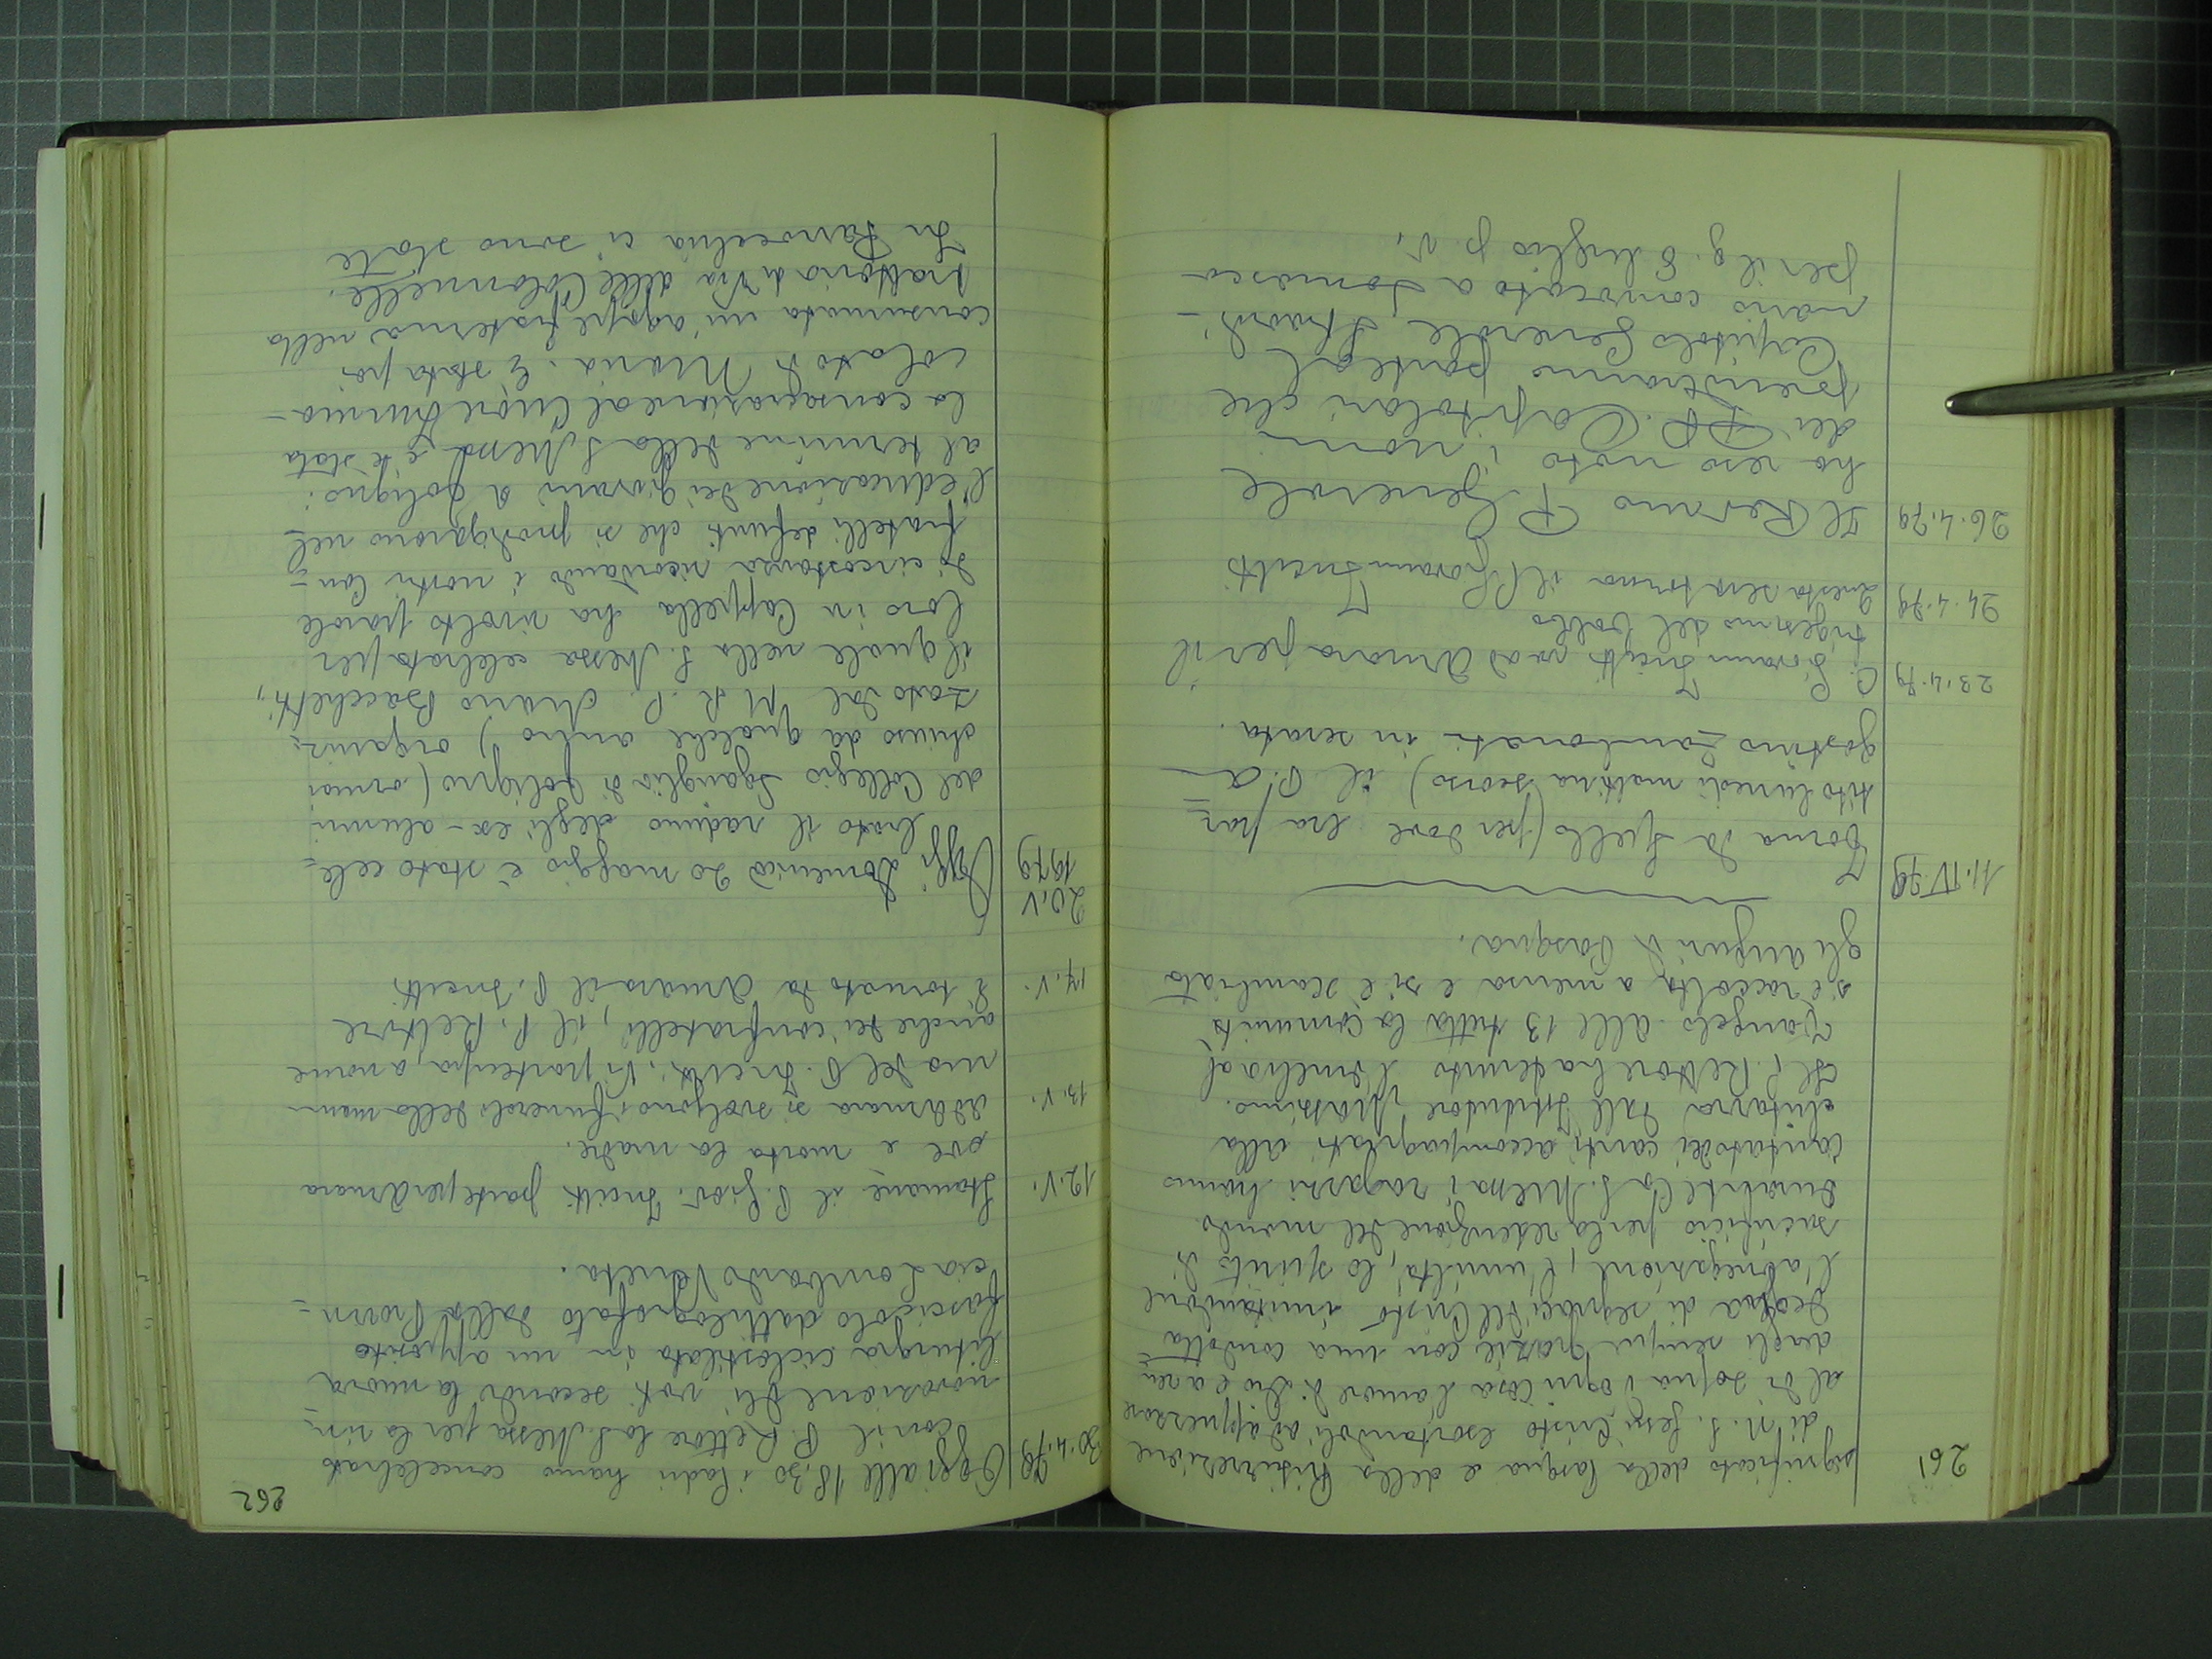 261
significato della Pasqua e della Risurrezione
di N. S. Gesù Cristo esortandoli ad apprezzare
al di sopra d'ogni cosa l'amore di Dio e a ren=
dergli sempre grazie con una condotta
degna di seguaci del Cristo imitandone
l'abnegazione, l'umiltà, lo spirito di
sacrificio per la redenzione del mondo.
Durante la S. Messa i ragazzi hanno
cantato dei canti accompagnati alla
chitarra dall'Istitutore Massimo.
Il P. Rettore ha tenuto l'omelia al
Vangelo. Alle 13 tutta la Comunità
si è raccolta a mensa e si è scambiata
gli auguri di Pasqua.
11.IV.79
Torna da Spello (per dove era par=
tito lunedì mattina scorso) il P. A=
gostino Zambonati in serata.
23.4.79
P. Giovanni Incitti va ad Amara per il
trigesimo del babbo
24.4.79
Questa sera torna il P. Giovanni Incitti
26.4.79
Il Rev.mo P. Generale
ha reso noto i nomi
dei PP. Capitolari che
prenderanno parte al
Capitolo Generale Straordi-
nario convocato a Somasca
per il g. 8 luglio p. v.
262
30.4.79
Oggi alle 18,30 i Padri hanno concelebrato
con il P. Rettore la S. Messa per la rin=
novazione dei voti secondo la nuova
liturgia ciclostilata in un apposito
fascicolo dattilografato dalla Provin=
cia Lombardo Veneta.
12.V.
Stamane il P. Giov. Incitti parte per Amara
ove è morta la madre.
13.V.
Ad Amara si svolgono i funerali della mam=
ma del P. Incitti. Vi partecipa, a nome
anche dei confratelli, il P. Rettore
14.V.
È tornato da Amara il P. Incitti
20.V
1979
Oggi Domenica 20 maggio è stato cele=
brato il raduno degli ex-alunni
del Collegio Sgariglia di Foligno (ormai
chiuso da qualche anno) organiz=
zato dal M. R. P. Mario Bacchetti,
il quale nella S. Messa celebrata per
loro in Cappella ha rivolto parole
di circostanza ricordando i nostri Con=
fratelli defunti che si prodigarono nel=
l'educazione dei giovani a Foligno:
al termine della S. Messa si è stata
la consacrazione al Cuore Immaco-
colato di Maria. È stata poi
consumata un'agape fraterna nella
trattoria di Via delle Colonnelle.
In Parrocchia ci sono state